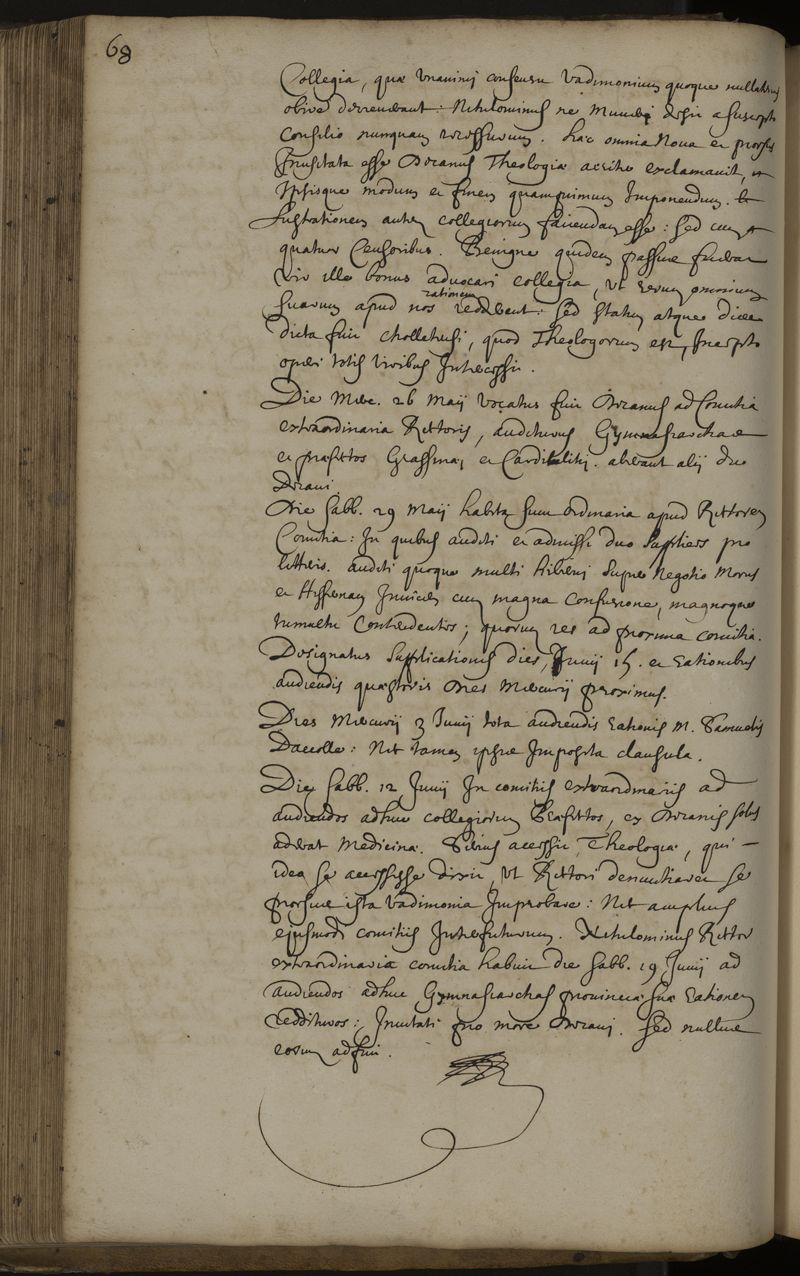 68
Collegia, quæ Vnanimj consensu Vadimonium quoque nullatenus
obire decreverant: Nihilominus ne Minimum desijt a suscepto
Consilio nunquam recessurum. hæc omnia Noua et prorsus
Inusitata esse Decanus Theologiæ acriter exclamauit,
Ipsisque modum et finem quamprimum Imponendum.
Lustrationem autem collegiorum faciendam esse: sed cum
quatuor Censoribus. Benigne quidem passure fuerat
vir ille bonus aduocari collegia, Vt rerum omnium
suarum apud nos rationem redderent: sed statim atque dicta
dicta fuit Cholletensi, quod Theologorum est, Incepto
operi totis Viribus Intercessit.
Die Merc. 26 Maij Vocatus fuit Decanus ad Comitia
extraordinaria Rectoris, auditurus Gymnasiarchas
et præfectos Grassinæ, et Carditalitij. aberant alij duo
Decani.
Die Sabb. 29 Maij habita sunt ordinaria apud Rectorem
Comitia: In quibus auditi et admissi duo Supplices pro
litteris. auditi quoque multi Hiberni super Negotio Morus
et Inuicem cum magna Confusione, magnoque
tumultu Contendentes; quorum res ad proxima comitia.
Designatus Supplicationis dies, Junij 15. et rationibus
audiendis quæstoris Dies Mercurij proximus.
Dies Mercurij 2 Junij tota audiendis rationis M. Samuelis
Dacolle: Nec tamen ipsæ Imposita clausula.
Die Sabb. 12 Junij In comitiis extraordinariis ad
audiendos adhuc collegiorum Præfectos, ex Decanis solus
aderat Medicinæ. Serius accessit Theologiæ, qui
idea se accessisse dixit, Vt Rectori denuntiaret se
prorsus ista Vadimonia Improbare: Nec amplius
ejusmodi comitiis Interfuturum. Nihilominus Rector
extraordinaria comitia habuit die Sabb. 19 Junij ad
audiendos adhuc Gymnasiarchas prouinciæ suæ rationem
reddituros: Inuitati pro more Decani. Sed nullus
eorum adfuit.